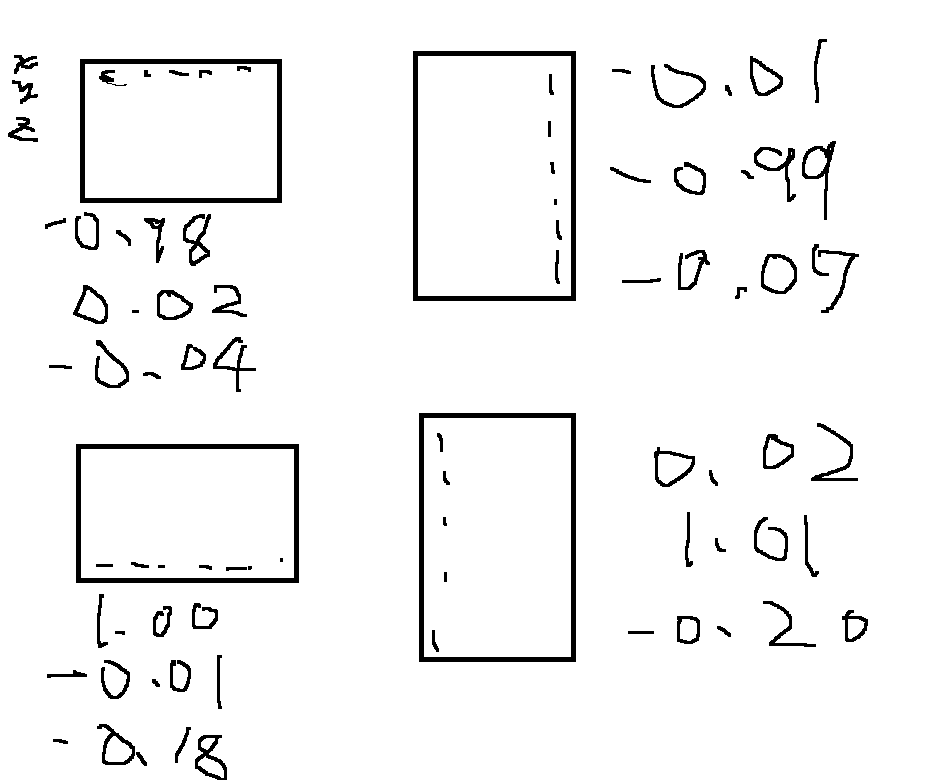 x
y
z
-0.98
0.02
-0.04
-0.01
-0.99
-0.07
1.00
-0.01
-0.18
0.02
1.01
-0.20